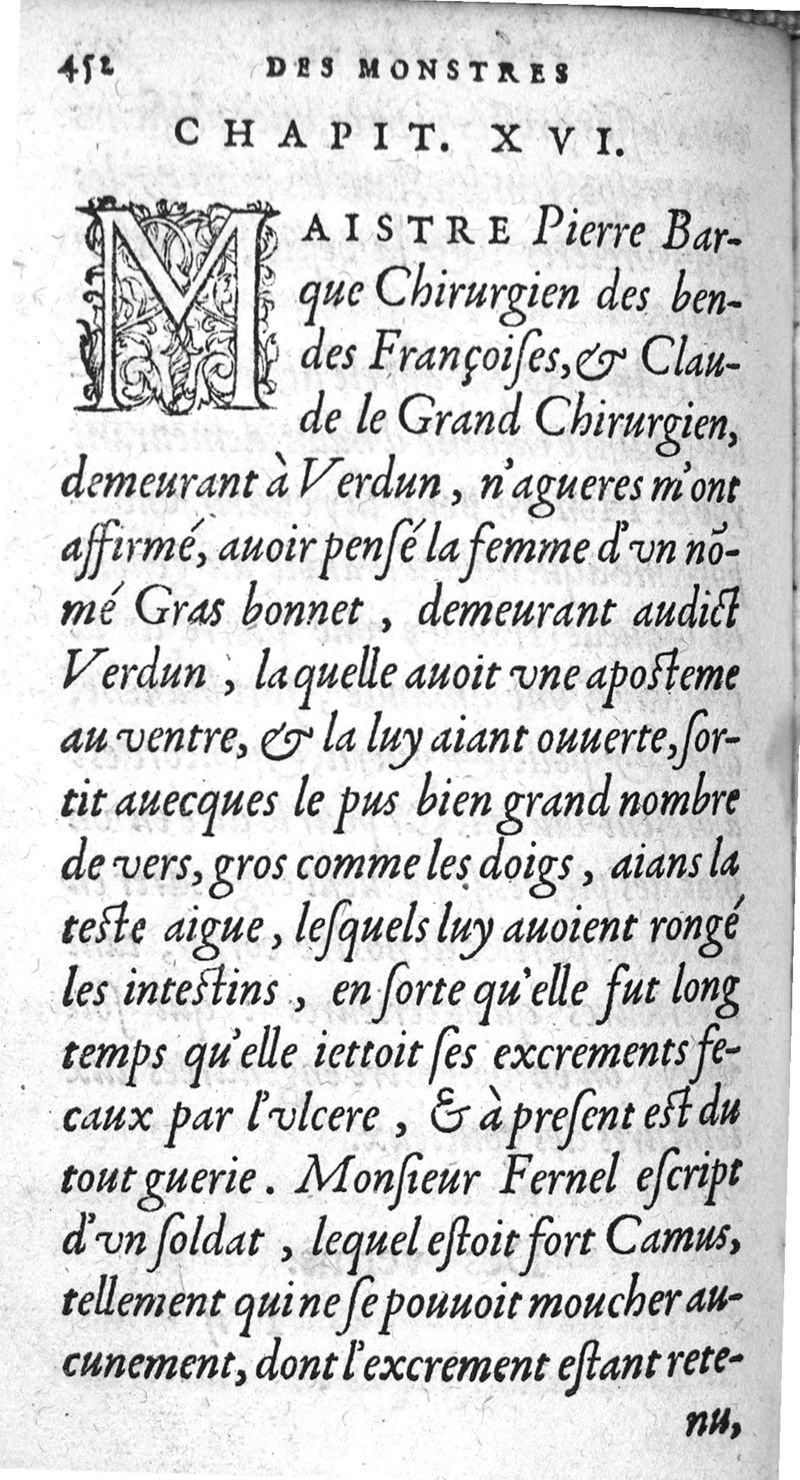 452 DES MONSTRES
CHAPIT. XVI.
MAISTRE Pierre Bar-
que Chirurgien des ben-
des Françoiſes, & Clau-
de le Grand Chirurgien,
demeurant à Verdun, n'agueres m'ont
affirmé, auoir penſé la femme d'vn nõ-
mé Gras bonnet, demeurant audict
Verdun, laquelle auoit vne aposteme
au ventre, & la luy aiant ouuerte, ſor-
tit auecques le pus bien grand nombre
de vers, gros comme les doigs, aians la
teste aigue, leſquels luy auoient rongé
les intestins, en ſorte qu'elle fut long
temps qu'elle iettoit ſes excrements fe-
caux par l'vlcere, & à preſent est du
tout guerie. Monſieur Fernel eſcript
d'vn ſoldat, lequel eſtoit fort Camus,
tellement qui ne ſe pouuoit moucher au-
cunement, dont l'excrement eſtant rete-
nu,